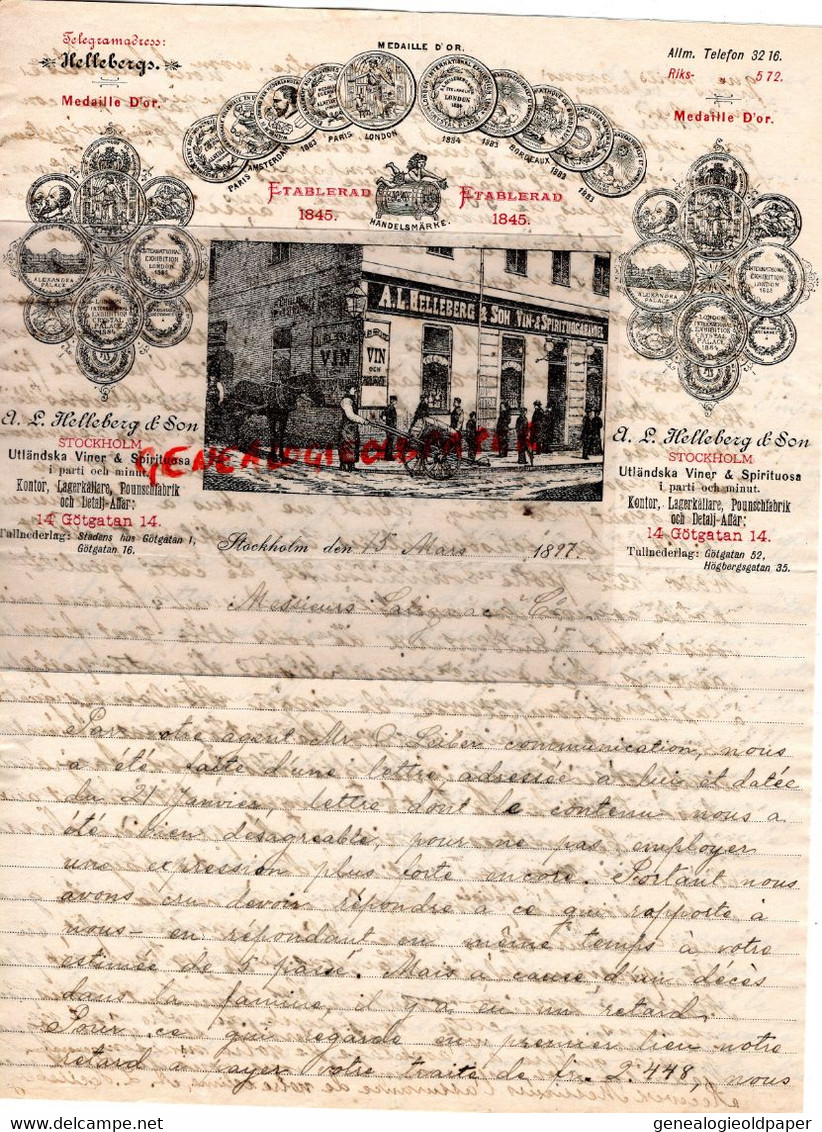 Telegramadress:
Hellebergs.
Medaille D'or.
MEDAILLE D'OR.
Allm. Telefon 32 16.
Riks- " 5 72.
Medaille D'or.
PARIS AMSTERDAM 1883 PARIS LONDON 1884 1883 BORDEAUX 1882 1883
ETABLERAD
1845.
HANDELSMÄRKE.
ETABLERAD
1845.
ALEXANDRA
PALACE
INTERNATIONAL
EXHIBITION
LONDON
1884
ALEXANDRA
PALACE
INTERNATIONAL
EXHIBITION
LONDON
A.L. HELLEBERG & SON VIN & SPIRITUOSAHANDEL
VIN
VIN
OCH
A. L. Helleberg & Son
STOCKHOLM
Utländska Viner & Spirituosa
i parti och minut.
Kontor, Lagerkällare, Pounschfabrik
och Detalj-Affär:
14 Götgatan 14.
Tullnederlag: Stadens hus Götgatan 1,
Götgatan 16.
A. L. Helleberg & Son
STOCKHOLM
Utländska Viner & Spirituosa
i parti och minut.
Kontor, Lagerkällare, Pounschfabrik
och Detalj-Affär:
14 Götgatan 14.
Tullnederlag: Götgatan 52,
Högbergsgatan 35.
GENEALOGIEOLDPAPER
Stockholm den 15 Mars 1897.
Messieurs
Par votre agent Mr O Leiber communication, nous
a été faite d'une lettre adressée à lui et datée
du 21 Janvier, lettre dont le contenu nous a
été bien désagreable, pour ne pas employer
une expression plus forte encore. Portant nous
avons cru devoir répondre a ce qui rapporte à
nous- en repondant en même temps à votre
estimée de 5 passé. Mais à cause d'un décès
dans la famine, il y a eu un retard.
Pour ce qui regarde en premier lieu notre
retard a payer votre traite de fr. 2.448, nous
genealogieoldpaper